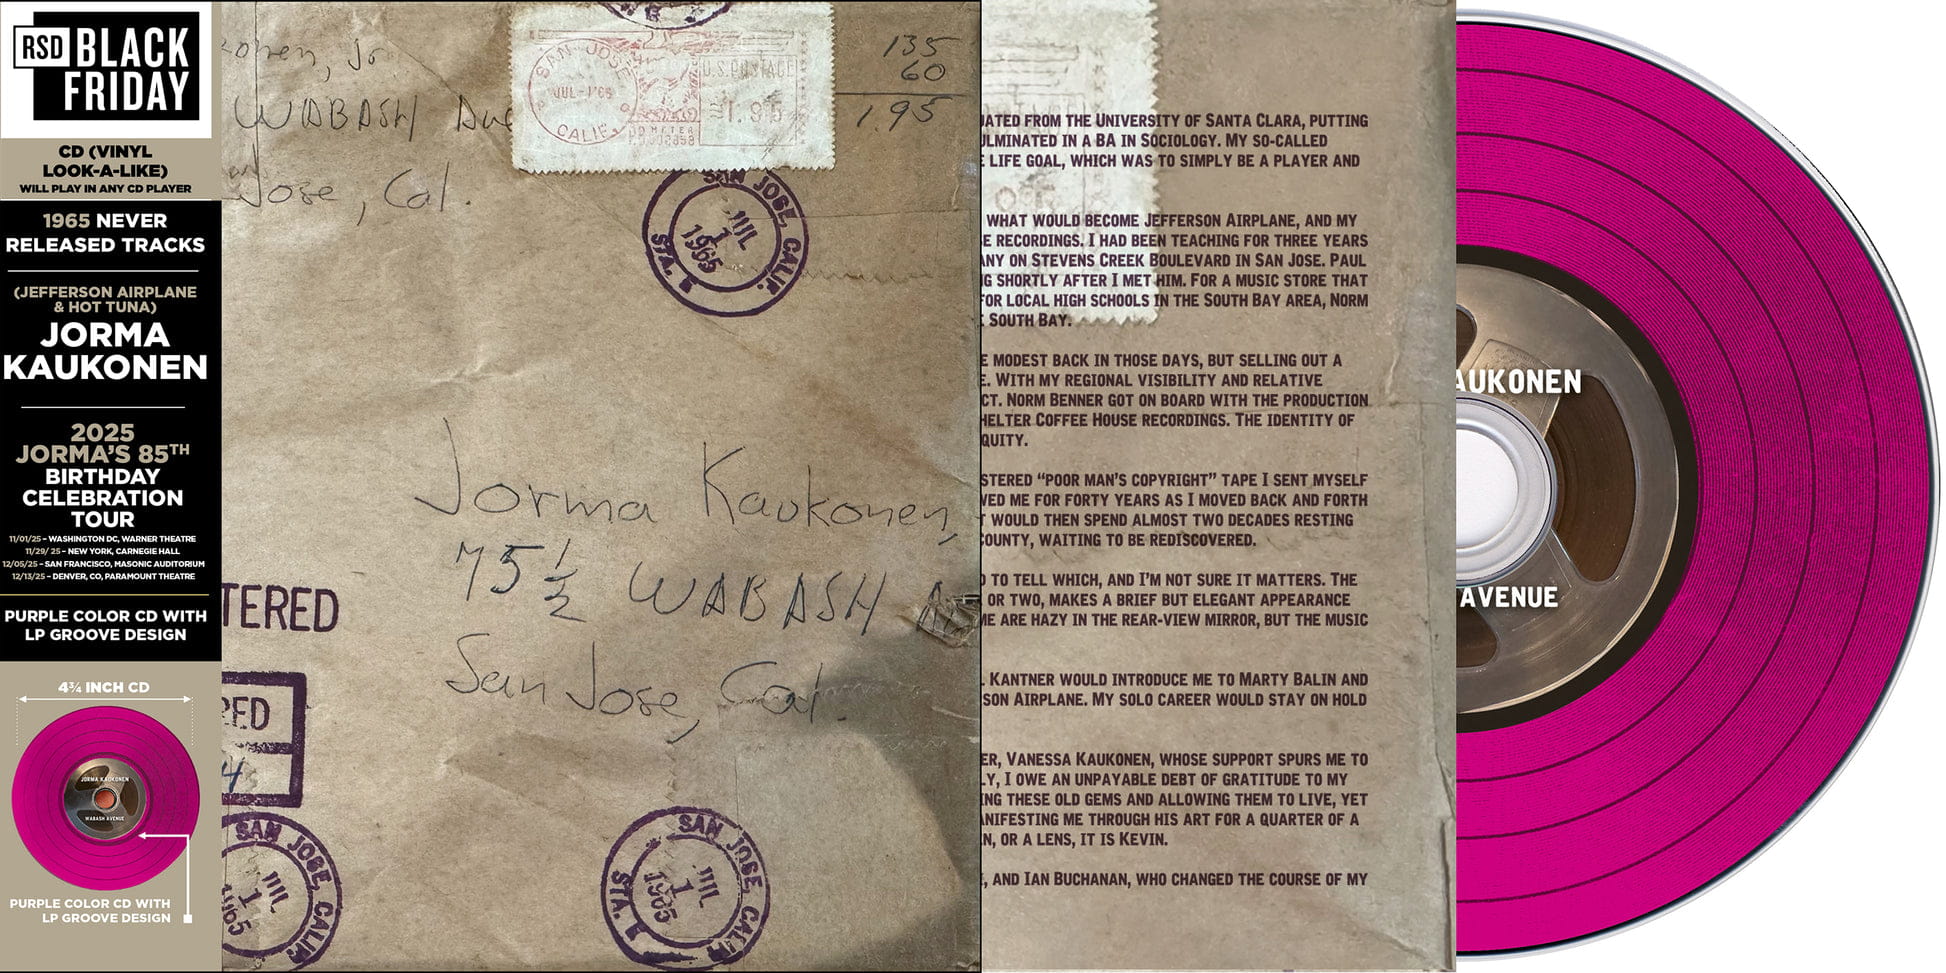 RSD BLACK
FRIDAY
CD (VINYL
LOOK-A-LIKE)
WILL PLAY IN ANY CD PLAYER
1965 NEVER
RELEASED TRACKS
(JEFFERSON AIRPLANE
& HOT TUNA)
JORMA
KAUKONEN
2025
JORMA'S 85TH
BIRTHDAY
CELEBRATION
TOUR
11/01/25 – WASHINGTON DC, WARNER THEATRE
11/29/25 – NEW YORK, CARNEGIE HALL
12/05/25 – SAN FRANCISCO, MASONIC AUDITORIUM
12/13/25 – DENVER, CO, PARAMOUNT THEATRE
PURPLE COLOR CD WITH
LP GROOVE DESIGN
4¾ INCH CD
JORMA KAUKONEN
WABASH AVENUE
PURPLE COLOR CD WITH
LP GROOVE DESIGN
konen, Jo
WABASH Ave
Jose, Cal.
SAN JOSE
JUL-1'65
CALIF.
U.S. POSTAGE
1.95
135
60
1.95
SAN JOSE, CALIF.
JUL
1
1965
STA. B
Jorma Kaukonen,
75 1/2 WABASH
San Jose, Cal.
TERED
RED
4
SAN JOSE, CALIF.
JUL
1
1965
SAN JOSE, CALIF.
JUL
1
1965
STA. B
UATED FROM THE UNIVERSITY OF SANTA CLARA, PUTTING
ULMINATED IN A BA IN SOCIOLOGY. MY SO-CALLED
E LIFE GOAL, WHICH WAS TO SIMPLY BE A PLAYER AND
WHAT WOULD BECOME JEFFERSON AIRPLANE, AND MY
SE RECORDINGS. I HAD BEEN TEACHING FOR THREE YEARS
ANY ON STEVENS CREEK BOULEVARD IN SAN JOSE. PAUL
NG SHORTLY AFTER I MET HIM. FOR A MUSIC STORE THAT
FOR LOCAL HIGH SCHOOLS IN THE SOUTH BAY AREA, NORM
E SOUTH BAY.
E MODEST BACK IN THOSE DAYS, BUT SELLING OUT A
E. WITH MY REGIONAL VISIBILITY AND RELATIVE
CT. NORM BENNER GOT ON BOARD WITH THE PRODUCTION
HELTER COFFEE HOUSE RECORDINGS. THE IDENTITY OF
QUITY.
STERED “POOR MAN'S COPYRIGHT” TAPE I SENT MYSELF
WED ME FOR FORTY YEARS AS I MOVED BACK AND FORTH
T WOULD THEN SPEND ALMOST TWO DECADES RESTING
COUNTY, WAITING TO BE REDISCOVERED.
D TO TELL WHICH, AND I'M NOT SURE IT MATTERS. THE
OR TWO, MAKES A BRIEF BUT ELEGANT APPEARANCE
ME ARE HAZY IN THE REAR-VIEW MIRROR, BUT THE MUSIC
KANTNER WOULD INTRODUCE ME TO MARTY BALIN AND
SON AIRPLANE. MY SOLO CAREER WOULD STAY ON HOLD
ER, VANESSA KAUKONEN, WHOSE SUPPORT SPURS ME TO
LY, I OWE AN UNPAYABLE DEBT OF GRATITUDE TO MY
ING THESE OLD GEMS AND ALLOWING THEM TO LIVE, YET
ANIFESTING ME THROUGH HIS ART FOR A QUARTER OF A
N, OR A LENS, IT IS KEVIN.
E, AND IAN BUCHANAN, WHO CHANGED THE COURSE OF MY
AUKONEN
AVENUE